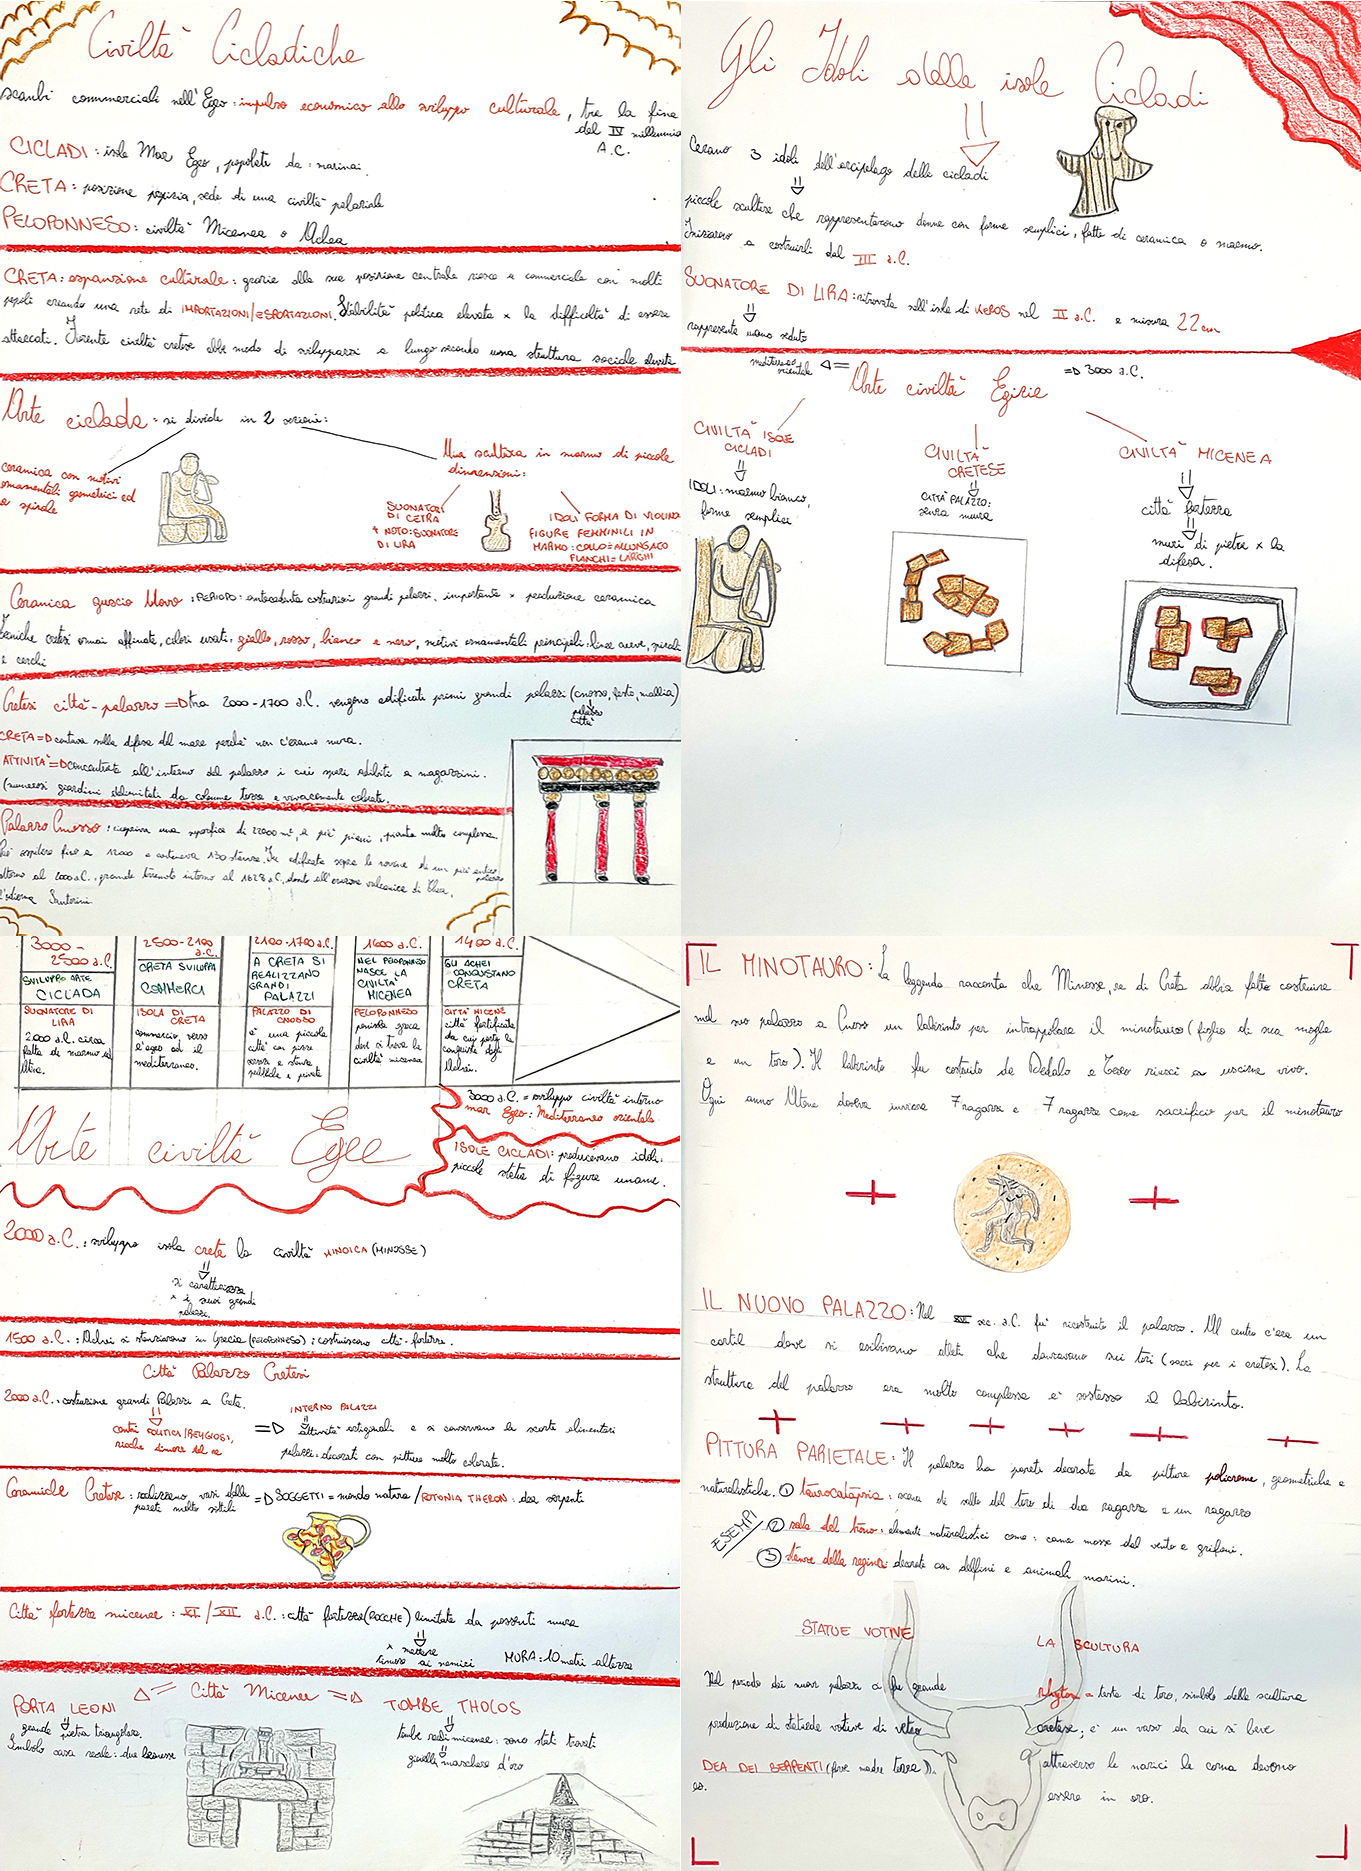 Civiltà Cicladiche
scambi commerciali nell'Egeo: impulso economico allo sviluppo culturale, tra la fine
del IV millennio
A.C.
CICLADI: isole Mar Egeo, popolate da: marinai.
CRETA: posizione, sede di una civiltà palaziale
PELOPONNESO: civiltà Micenea o Achea
CRETA: espansione culturale: grazie alla sua posizione centrale riesce a commerciale con molti
popoli creando una rete di IMPORTAZIONI/ESPORTAZIONI. Stabilità politica elevata x la difficoltà di essere
attaccati. civiltà cretese ebbe modo di svilupparsi a lungo secondo una struttura sociale
Arte ciclada: si divide in 2 sezioni:
ceramica con motivi
ornamentali geometrici ed
a spirale
Una scultura in marmo di piccole
dimensioni:
SUONATORI
DI CETRA
+ NOTO: SUONATORE
DI LIRA
IDOLI FORMA DI VIOLINO
FIGURE FEMMINILI IN
MARMO: COLLO=ALLUNGATO
FIANCHI=LARGHI
Ceramica guscio Uovo: PERIODO: antecedente costruzioni grandi palazzi, importante x produzione ceramica
Tecniche cretesi ormai affinate, colori usati: giallo, rosso, bianco e nero, motivi ornamentali principali: linee curve, spirali
e cerchi
Cretesi città-palazzo => tra 2000-1700 a.C. vengono edificati primi grandi palazzi (cnosso, festo, mallia)
palazzo
città
CRETA => contava sulla difesa del mare perchè non c'erano mura.
ATTIVITÀ => concentrate all'interno del palazzo i cui spazi adibiti a magazzini.
(numerosi giardini delimitati da colonne tozze e vivacemente colorate.
Palazzo Cnosso: ricopriva una superficie di 22000 m², a più piani, pianta molto complessa.
Può ospitare fino a 12000 e conteneva 130 stanze. Fu edificata sopra le rovine di un più antico
palazzo
attorno al 2000 a.C., grande terremoto intorno al 1628 a.C. dovuto all'eruzione vulcanica di Thera,
l'odierna Santorini
Gli Idoli delle isole Cicladi
C'erano 3 idoli dell'arcipelago delle cicladi
piccole sculture che rappresentavano donne con forme semplici, fatte di ceramica o marmo.
Iniziarono a costruirli dal III a.C.
SUONATORE DI LIRA: ritrovata nell'isola di KEROS nel II a.C. e misura 22 cm
rappresenta uomo seduto
mediterraneo
orientale
Arte civiltà Egizie
=> 3000 a.C.
CIVILTÀ ISOLE
CICLADI
IDOLI: marmo bianco,
forme semplici
CIVILTÀ
CRETESE
CITTÀ PALAZZO:
senza mura
CIVILTÀ MICENEA
città fortezza
muri di pietra x la
difesa.
3000 -
2500 a.C.
SVILUPPO ARTE
CICLADA
SUONATORE DI
LIRA
2000 a.C. circa
fatta di marmo ed
altro.
2500-2100
a.C.
CRETA SVILUPPA
COMMERCI
ISOLA DI
CRETA
commercio, verso
l'egeo ed il
mediterraneo.
2100-1700 a.C.
A CRETA SI
REALIZZANO
GRANDI
PALAZZI
PALAZZO DI
CNOSSO
è una piccola
città con piazze
e stanze
pubbliche e private
1600 a.C.
NEL PELOPONNESO
NASCE LA
CIVILTÀ
MICENEA
PELOPONNESO
penisola greca
dove si trova la
civiltà micenea
1400 a.C.
GLI ACHEI
CONQUISTANO
CRETA
CITTÀ MICENE
città fortificata
da cui parte la
conquista degli
Achei.
3000 a.C. = sviluppo civiltà interno
mar Egeo: Mediterraneo orientale
Arte civiltà Egee
ISOLE CICLADI: producevano idoli,
piccole statue di figure umane.
2000 a.C.: sviluppo isola creta la civiltà MINOICA (MINOSSE)
si caratterizza
x i suoi grandi
palazzi.
1500 a.C.: Achei si stanziarono in Grecia (PELOPONNESO): costruiscono città-fortezze.
Città Palazzo Cretesi
2000 a.C.: costruzione grandi Palazzi a Creta.
centri POLITICI/RELIGIOSI,
ricche dimore del re
INTERNO PALAZZI
=> attività artigianali e si conservano la scorte alimentari
palazzi: decorati con pitture molto colorate.
Ceramiche Cretese: realizzano vasi dalle
pareti molto sottili
=> SOGGETTI = mondo natura / POTNIA THERON: dea serpenti
Città fortezza micenee: XI / XII a.C.: città fortezza (ROCCHE) limitate da possenti mura
x mettere
timore ai nemici
MURA: 10 metri altezza
PORTA LEONI
grande pietra triangolare.
Simbolo casa reale: due leonesse
Città Micenee
TOMBE THOLOS
tombe reali micenee: sono stati trovati
gioielli maschere d'oro
IL MINOTAURO: La leggenda racconta che Minosse, re di Creta abbia fatto costruire
nel suo palazzo a Cnosso un labirinto per intrappolare il minotauro (figlio di sua moglie
e un toro). Il labirinto fu costruito da Dedalo e Teseo riuscì a uscirne vivo.
Ogni anno Atene doveva inviare 7 ragazzi e 7 ragazze come sacrificio per il minotauro
IL NUOVO PALAZZO: Nel XVI sec. a.C. fu ricostruito il palazzo. Al centro c'era un
cortile dove si esibivano atleti che danzavano sui tori (sacri per i cretesi). La
struttura del palazzo era molto complessa e' sostesso il labirinto.
PITTURA PARIETALE: Il palazzo ha pareti decorate da pitture policrome, geometriche e
naturalistiche. ① taurocatapsia: scena di salto del toro di due ragazze e un ragazzo
ESEMPI
② sala del trono: elementi naturalistici come: canne mosse dal vento e grifoni.
③ stanze della regina: decorate con delfini e animali marini.
STATUE VOTIVE
Nel periodo dei nuovi palazzi ci fu grande
produzione di statuette votive di
DEA DEI SERPENTI (forse madre terra).
LA SCULTURA
Rhyton = testa di toro, simbolo della scultura
cretese; è un vaso da cui si beve
attraverso le narici le corna devono
essere in oro.